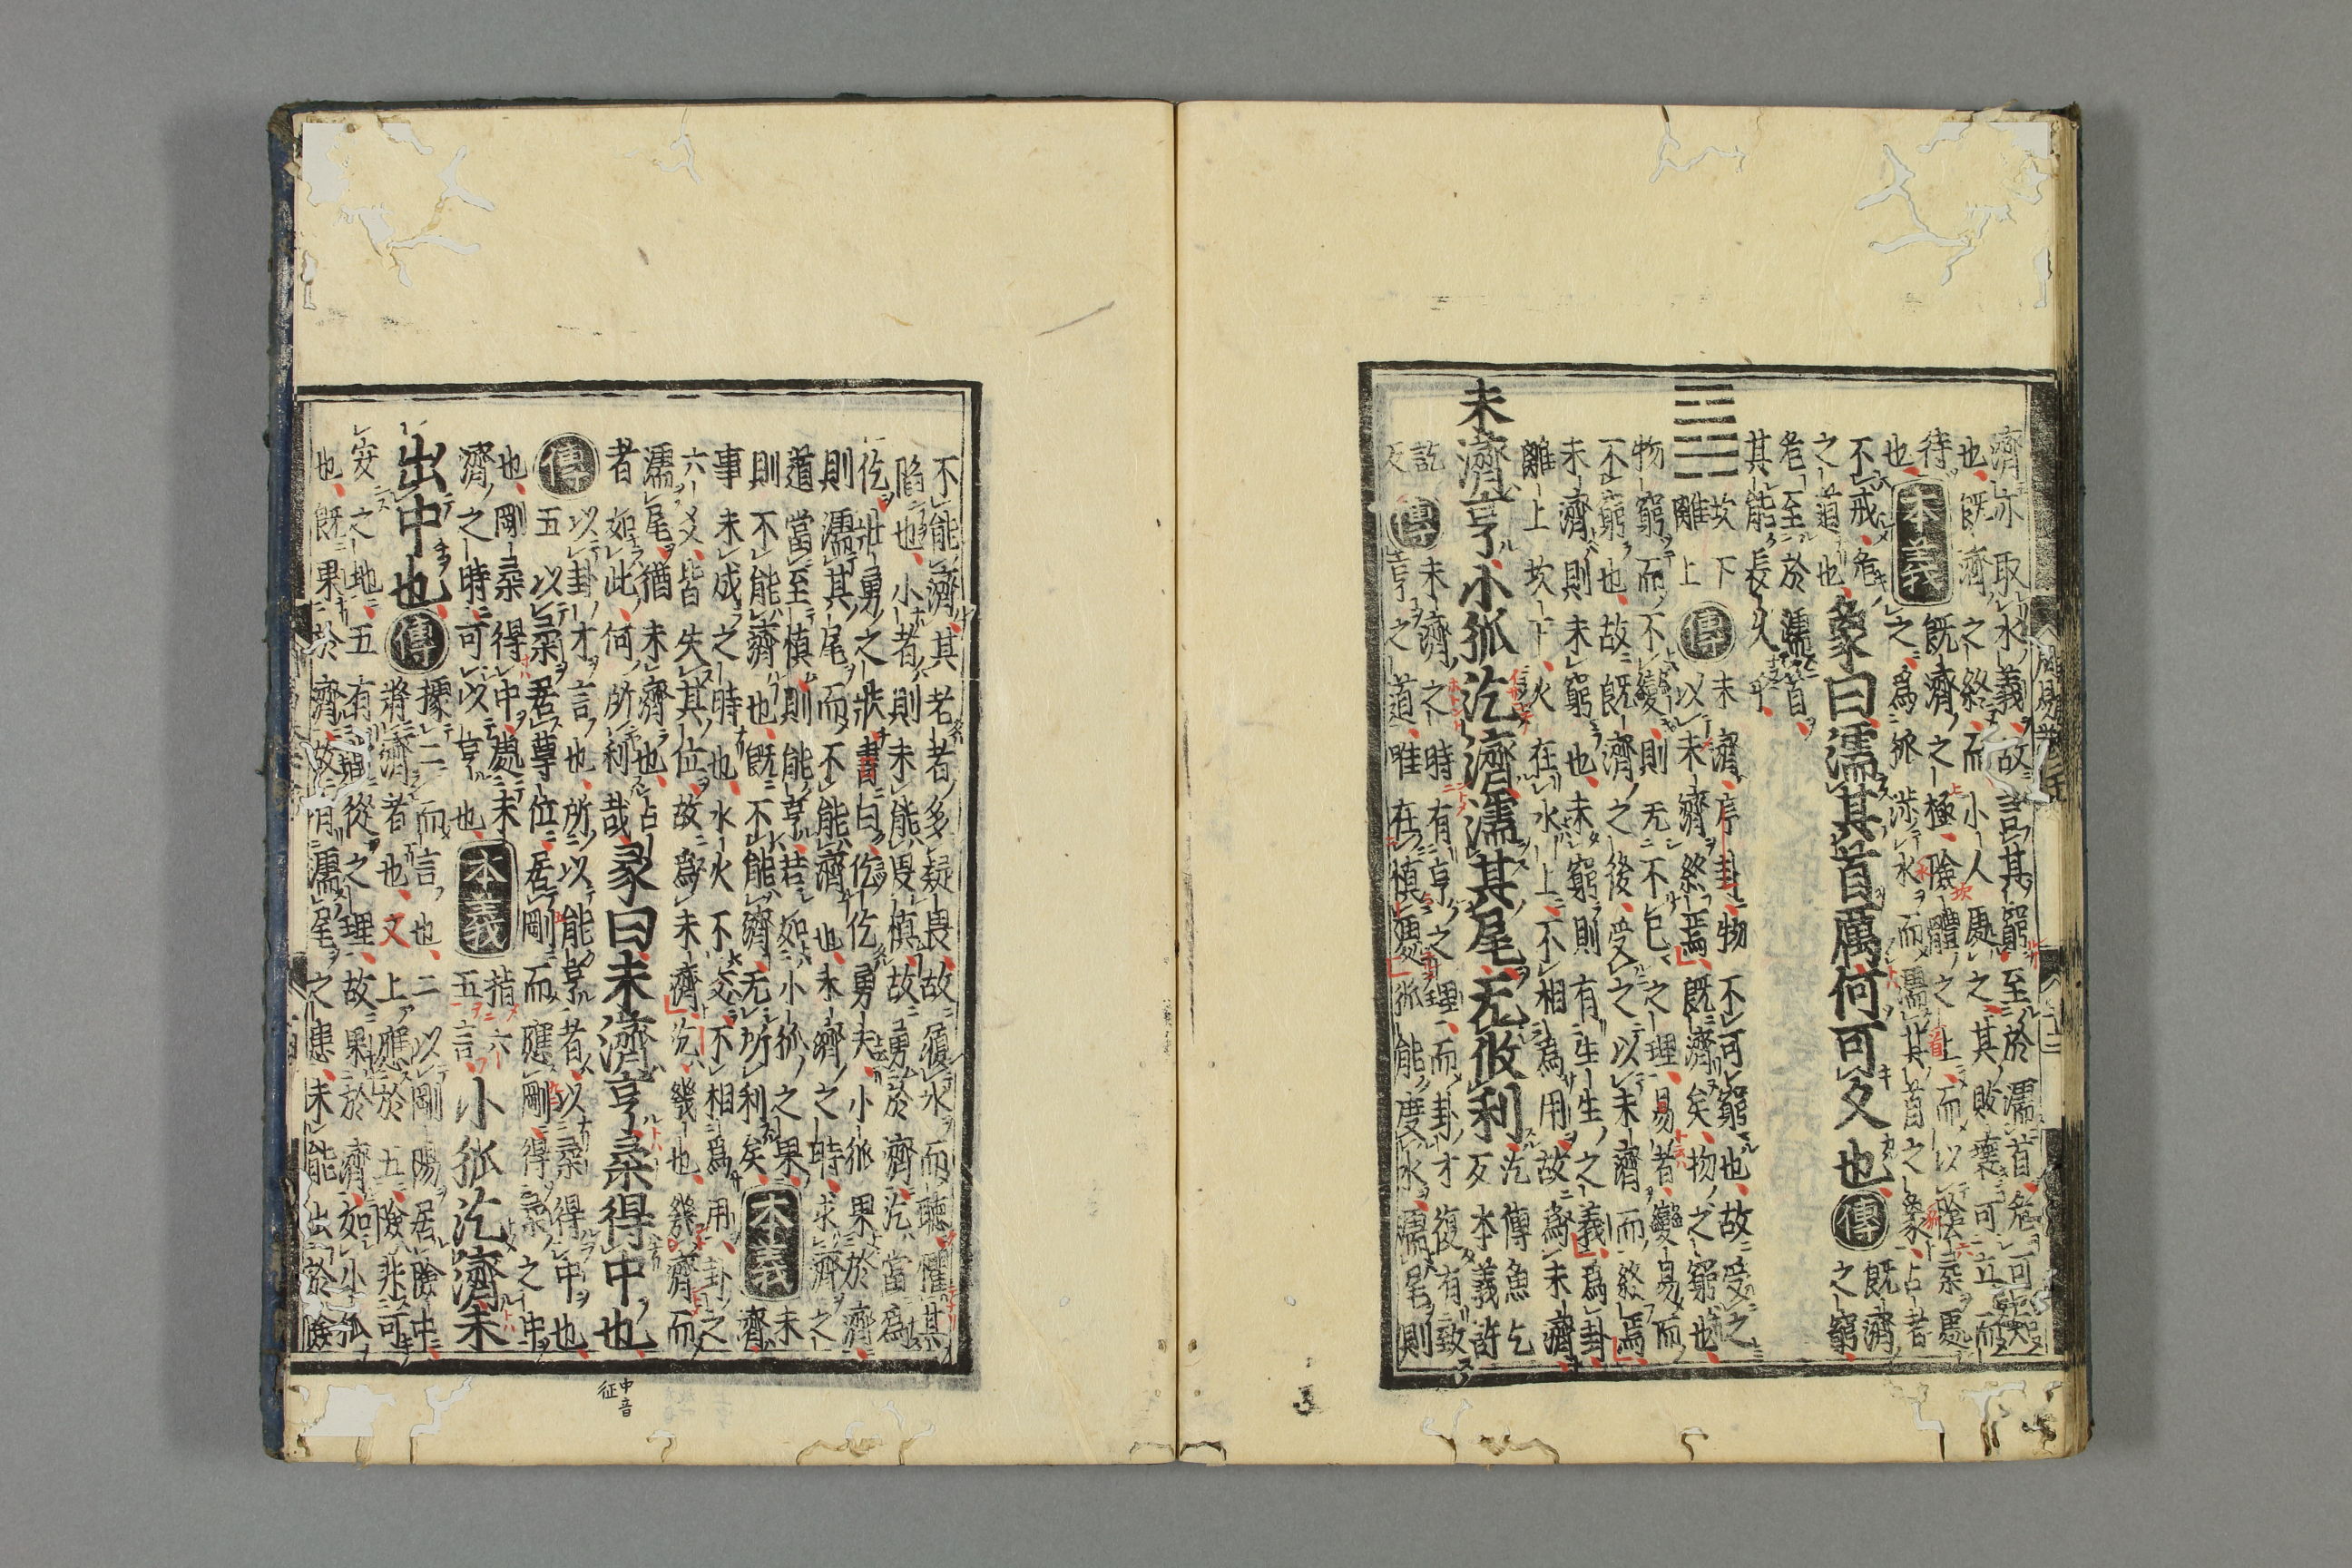 濟亦取水義故言其窮至於濡首危可知矣
也既濟之終而小人處之其敗壞可立而
待也
本義
既濟之極險體之上而以陰柔處
之為狐涉水而濡其首之象占者
不戒危
之道也
象曰濡其首厲何可久也
傳
既濟
之窮
危至於濡首
其能長久乎
坎下
離上
傳
未濟序卦物不可窮也故受之
以未濟終焉既濟矣物之窮也
物窮而不變則无不已之理易者變易而
不窮也故既濟之後受之以未濟而終焉
未濟則未窮也未窮則有生生之義為卦
離上坎下火在水上不相為用故為未濟
未濟亨小狐汔濟濡其尾无攸利
汔傳魚乞
反本義許
訖
反
傳
未濟之時有亨之理而卦才復有致
亨之道唯在慎處狐能度水濡尾則
不能濟其老者多疑畏故履冰而聽懼其
陷也小者則未能畏慎故勇於濟汔當為
仡壯勇之狀書曰仡仡勇夫小狐果於濟
則濡其尾而不能濟也未濟之時求濟之
道當至慎則能亨若如小狐之果
則不能濟也既不能濟无所利矣
本義
未
濟
事未成之時也水火不交不相為用卦之
六爻皆失其位故為未濟汔幾也幾濟而
濡尾猶未濟也占
者如此何所利哉
彖曰未濟亨柔得中也
傳
以卦才言也所以能亨者以柔得中也
五以柔居尊位居剛而應剛得柔之中
也剛柔得中處未
濟之時可以亨也
本義
指六
五言
小狐汔濟未
出中也
傳
據二而言也二以剛陽居險中
將濟者也又上應於五險非可
安之地五有當從之理故果於濟如小狐
也既果於濟故有濡尾之患未能出於險
中音
征